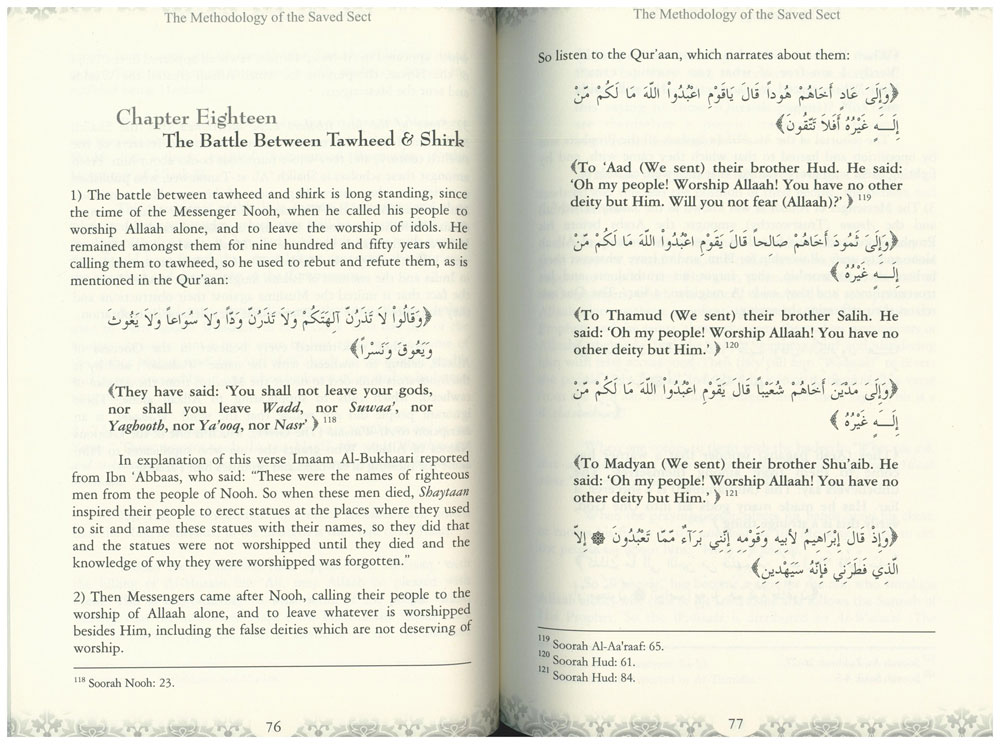 The Methodology of the Saved Sect
Chapter Eighteen
The Battle Between Tawheed & Shirk
1) The battle between tawheed and shirk is long standing, since
the time of the Messenger Nooh, when he called his people to
worship Allaah alone, and to leave the worship of idols. He
remained amongst them for nine hundred and fifty years while
calling them to tawheed, so he used to rebut and refute them, as is
mentioned in the Qur'aan:
﴿وَقَالُواْ لاَ تَذَرُنَّ آلِهَتَكُمْ وَلاَ تَذَرُنَّ وَدّاً وَلاَ سُوَاعاً وَلاَ يَغُوثَ
وَيَعُوقَ وَنَسْراً﴾
﴾They have said: 'You shall not leave your gods,
nor shall you leave Wadd, nor Suwaa', nor
Yaghooth, nor Ya'ooq, nor Nasr' ﴿ 118
In explanation of this verse Imaam Al-Bukhaari reported
from Ibn 'Abbaas, who said: "These were the names of righteous
men from the people of Nooh. So when these men died, Shaytaan
inspired their people to erect statues at the places where they used
to sit and name these statues with their names, so they did that
and the statues were not worshipped until they died and the
knowledge of why they were worshipped was forgotten."
2) Then Messengers came after Nooh, calling their people to the
worship of Allaah alone, and to leave whatever is worshipped
besides Him, including the false deities which are not deserving of
worship.
118 Soorah Nooh: 23.
76
The Methodology of the Saved Sect
So listen to the Qur'aan, which narrates about them:
﴿وَإِلَىَ عَادٍ أَخَاهُمْ هُوداً قَالَ يَاقَوْمِ اعْبُدُواْ اللّهَ مَا لَكُمْ مّنْ
إِلَـَهٍ غَيْرُهُ أَفَلاَ تَتّقُونَ﴾
﴾To 'Aad (We sent) their brother Hud. He said:
'Oh my people! Worship Allaah! You have no other
deity but Him. Will you not fear (Allaah)?' ﴿ 119
﴿وَإِلَىَ ثَمُودَ أَخَاهُمْ صَالِحاً قَالَ يَقَوْمِ اعْبُدُواْ اللّهَ مَا لَكُمْ مّنْ
إِلَـَهٍ غَيْرُهُ ﴾
﴾To Thamud (We sent) their brother Salih. He
said: 'Oh my people! Worship Allaah! You have no
other deity but Him.' ﴿ 120
﴿وَإِلَىَ مَدْيَنَ أَخَاهُمْ شُعَيْباً قَالَ يَقَوْمِ اعْبُدُواْ اللّهَ مَا لَكُمْ مّنْ
إِلَـَهٍ غَيْرُهُ ﴾
﴾To Madyan (We sent) their brother Shu'aib. He
said: 'Oh my people! Worship Allaah! You have no
other deity but Him.' ﴿ 121
﴿وَإِذْ قَالَ إِبْرَاهِيمُ لأبِيهِ وَقَوْمِهِ إِنّنِي بَرَآءٌ مّمّا تَعْبُدُونَ ۞ إِلاّ
الّذِي فَطَرَنِي فَإِنّهُ سَيَهْدِينِ﴾
119 Soorah Al-Aa'raaf: 65.
120 Soorah Hud: 61.
121 Soorah Hud: 84.
77